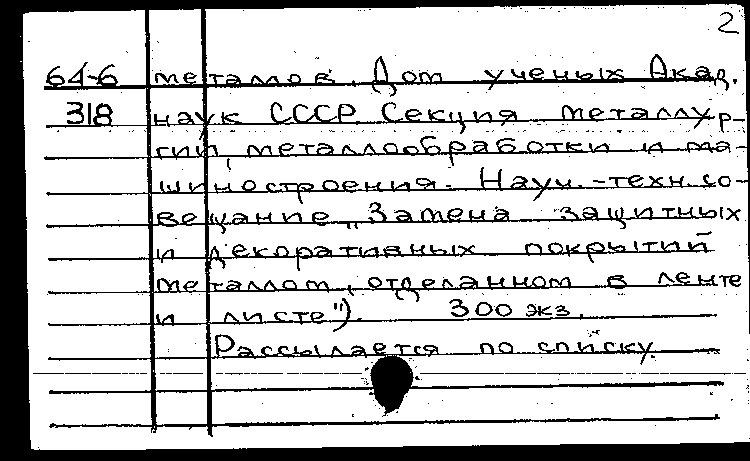 2
64-6 металлов. Дом ученых Акад.
318 наук СССР. Секция металлур-
гии, металлообработки и ма-
шиностроения. Науч.-техн. со-
вещание „Замена защитных
и декоративных покрытий
металлом, отделанном в ленте
и листе"). 300 экз.
Рассылается по списку.